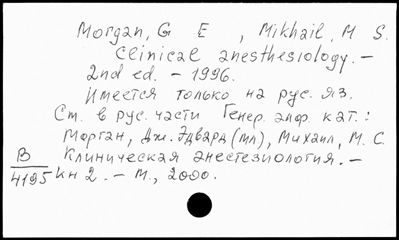 Morgan, G E , Mikhail, M S.
Clinical anesthesiology. –
2nd ed. – 1996.
Имеется только на рус. яз.
См. в рус. части Генер. алф. кат.:
Морган, Дж. Эдвард (мл), Михаил, М. С.
Клиническая анестезиология. –
В
4195
Кн 2. – М., 2000.